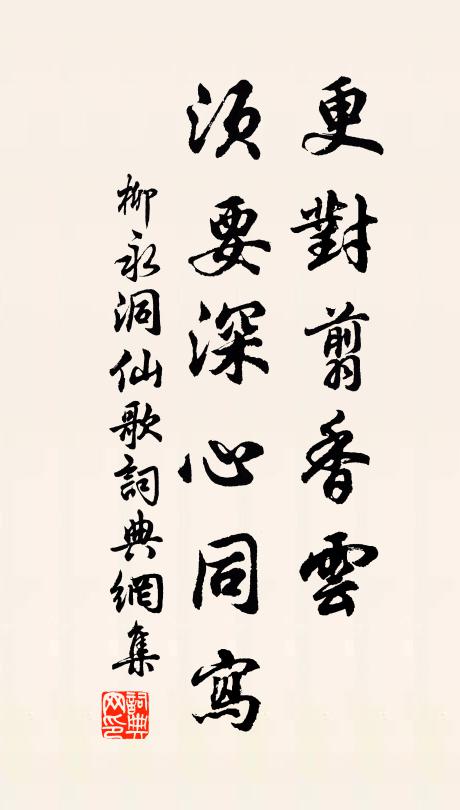 更對翦香雲
須要深心同寫
柳永洞仙歌詞典網集
詞典網印